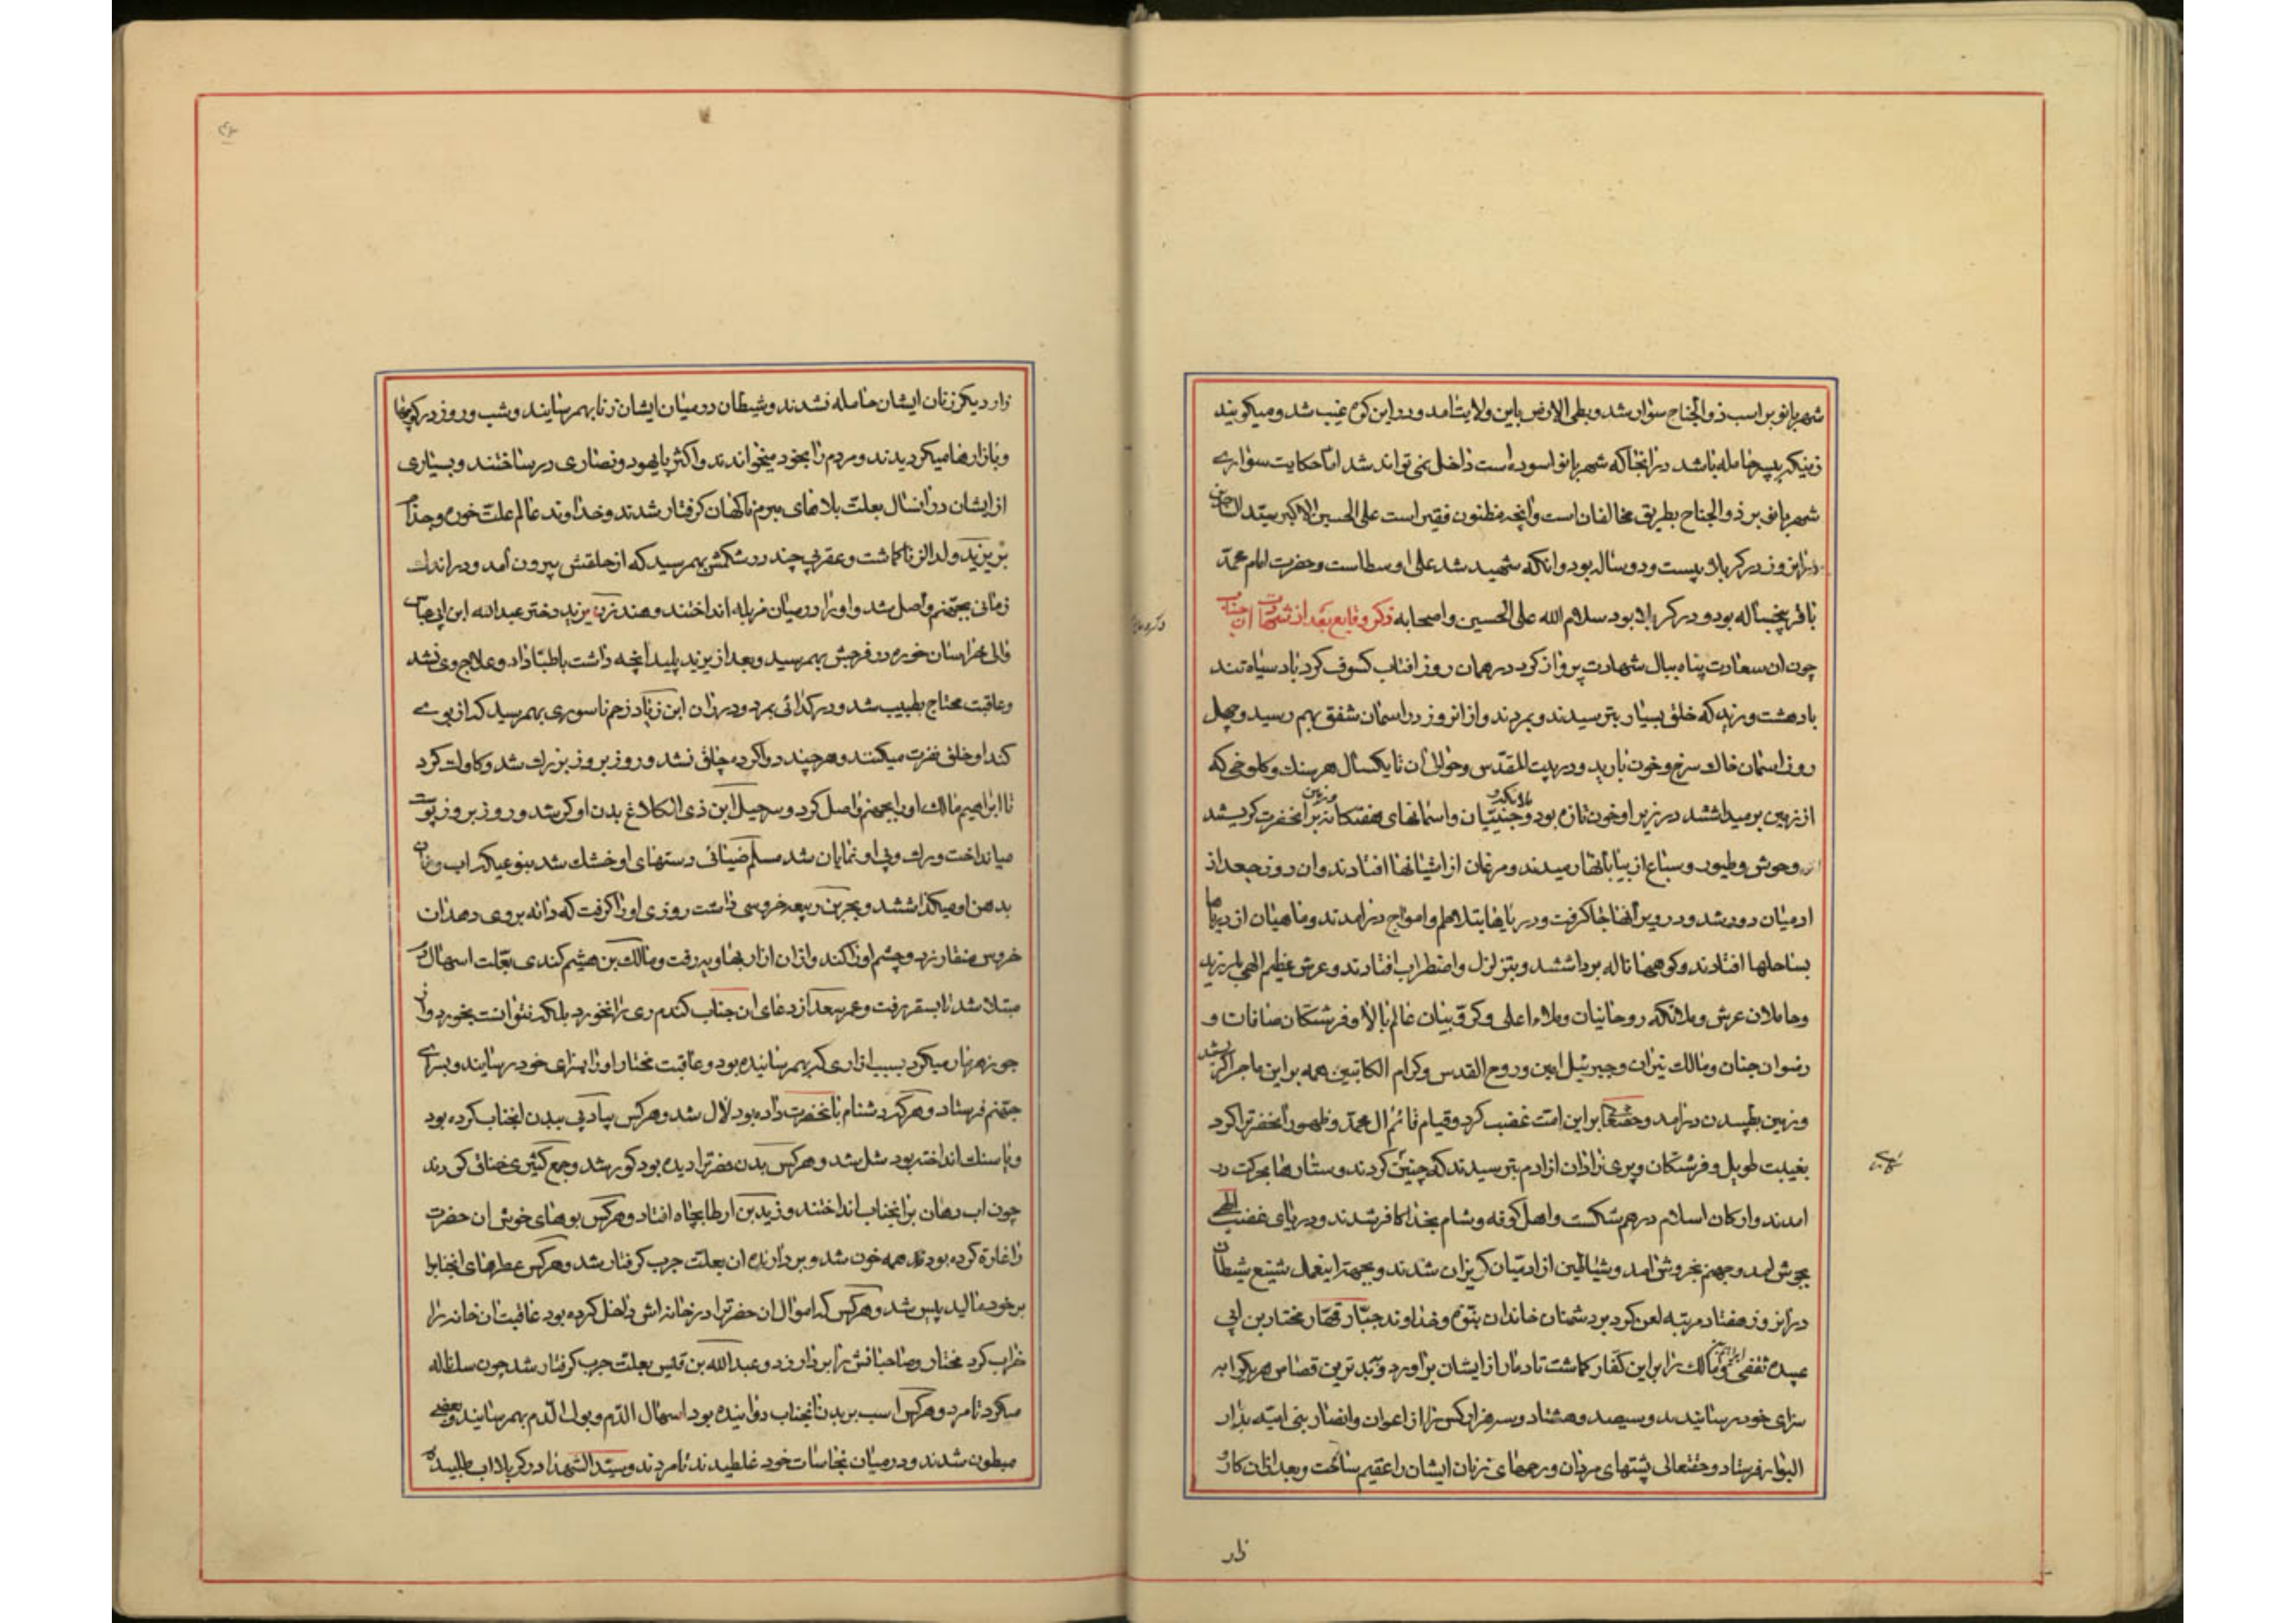 شهربانو بر اسب ذوالجناح سوار شد و بطی الارض باین ولایت آمد و در این کوه غیب شد و میکویند
زنیکه پسر حامله باشد در انجا که شهربانو اسوده است داخل نمی تواند شد اما حکایت سواری
شهربانو بر ذوالجناح بطریق مخالفان است وانچه مظنون فقیر است علی الحسین الاکبر سید
در انروز در کربلا بیست و دو ساله بود و انکه شهید شد علی اوسط است و حضرت امام محمد
باقر پنجساله بود و در کربلا بود سلام الله علی الحسین و اصحابه ذکر وقایع بعد از شهادت ان جناب
چون ان سعادت پناه ببال شهادت پرواز کرد در همان روز افتاب کسوف کرد باد سیاه تند
بادهشت وزید که خلق بسیار بترسیدند و بمردند و از انروز در اسمان شفق بهم رسید و چهل
روز اسمان خاک سرخ و خون بارید و در بیت المقدس و حوالی آن تا یکسال هر سنک و کلوخی که
از زمین برمیداشتند در زیر او خون تازه بود و جنیان و اسمانهای هفتکانه و زمین بر انحضرت کریستند
و وحوش و طیور و سباع از بیابانها رمیدند و مرغان از اشیانها افتادند و ان روز جعد از
ادمیان دور شد و در ویرانها جا کرفت و دریاها بتلاطم و امواج درامدند و ماهیان از دریاها
بساحلها افتادند و کوهها ناله برداشتند و بتزلزل و اضطراب افتادند و عرش عظیم الهی بلرزید
و حاملان عرش و ملائکه روحانیان و ملاء اعلی و کروبیان عالم بالا و فرشتکان صافات و
رضوان جنان و مالک نیران و جبرئیل امین و روح القدس و کرام الکاتبین همه براین ماجرا کریستند
و زمین بطپیدن درامد و حقتعالی بر این امت غضب کرد و قیام قائم ال محمد و ظهور انحضرترا کرد
بغیبت طویل و فرشتکان و پری نژادان از ادم بترسیدند که چنین کردند و ستارها بحرکت در
امدند و ارکان اسلام درهم شکست و اهل کوفه و شام بخدا کافر شدند و دریای غضب الهی
بجوش امد و جهنم بخروش امد و شیاطین از ادمیان کریزان شدند و بجهة اینعمل شنیع شیطان
در انروز هفتاد مرتبه لعن کرد بر دشمنان خاندان نبوة و خداوند جبار قهار مختار بن ابی
عبیده ثقفی و ابراهیم مالک را بر این کفار کماشت تا دمار از ایشان براورد و ببدترین قصاص هریکرا به
سزای خود رسانیدند و سیصد و هشتاد و سه هزار کس را از اعوان و انصار بنی امیه بدار
البوار فرستاد و حقتعالی پشتهای مردان و رحمهای زنان ایشان را عقیم ساخت و بعد از ان کار
زار
زار دیکر زنان ایشان حامله نشدند و شیطان در میان ایشان زنا بهم رسانید و شب و روز در کوچها
و بازارها میکردیدند و مردم را بخود میخواندند و اکثر با یهود و نصاری در ساختند و بسیاری
از ایشان در انسال بعلت بلاهای مبرم ناکهان کرفتار شدند و خداوند عالم علت خوره و جذام
بر یزید ولد الزنا کماشت و عقربی چند در شکمش بهم رسید که از حلقش بیرون آمد و در اندک
زمانی بجهنم واصل شد و او را در میان مزبله انداختند و هند زن یزید دختر عبدالله ابن
والی خراسان خوره در فرجش بهم رسید و بعد از یزید پلید آنچه داشت باطبا داد و علاج وی نشد
و عاقبت محتاج بطبیب شد و در کدائی بمرد و در ران ابن زیاد زخم ناسوری بهم رسید که از بوی
کند او خلق نفرت میکنند و هرچند دوا کرد چاق نشد و روز بروز بزرک شد و کاوات کرد
تا ابراهیم مالک او را بجهنم واصل کرد و سرجیل ابن ذی الکلاع بدن او کر شد و روز بروز پوست
میانداخت و رک و پی او نمایان شد مسلم ضبائی دستهای او خشک شد بنوعیکه اب و نان
بدهن او میکذاشتند و بحر بن ربیعه خروسی داشت روزی او را کرفت که دانه بر وی دهد ان
خروس منقار زد و چشم او را کند و از ان ازار بهاویه رفت و مالک بن هشیم کندی بعلت اسهال
مبتلا شد تا بسقر رفت و عمر سعد از دعای ان جناب کندم ری را نخورد بلکه نتوانست بخورد و از
جو زهرمار میکرد بسبب ازاری که بهم رسانیده بود و عاقبت مختار او را بسزای خود رسانید و بسرای
جهنم فرستاد و هرکه دشنام بانحضرت داده بود لال شد و هرکس بیادبی ببدن انجناب کرده بود
و یا سنک انداخته بود شل شد و هرکس بدن حضرترا دیده بود کور شد و جمع کثیری خناق کردند
چون اب دهان بر انجناب انداختند و زید بن ارطا بچاه افتاد و هرکس بوهای خوش ان حضرت
را غارة کرده بود همه خون شد و بردارنده ان بعلت جرب کرفتار شد و هرکس عطرهای انجنابرا
بر خود مالید پیس شد و هرکس که اموال ان حضرترا در خانه اش داخل کرده بود عاقبت ان خانه را
خراب کرد مختار و صاحبانش را بردار زد و عبدالله بن قیس بعلت جرب کرفتار شد چون سک ناله
میکرد تا مرد و هرکس اسب بر بدن انجناب دوانیده بود اسهال الدم و بول الدم بهم رسانیدند و بعضی
مبطون شدند و در میان نجاسات خود غلطیدند تا مردند و سید الشهدا در کربلا اب طلبیده